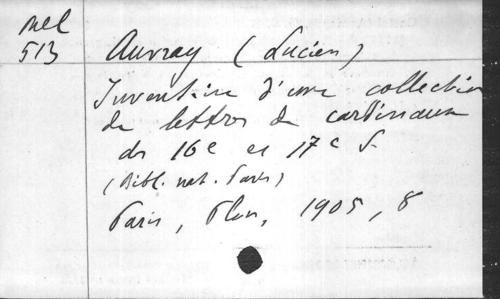 Mel
513 Auvray (Lucien)
Inventaire d'une collection
de lettres de cardinaux
des 16e et 17e s.
(Bibl. nat. Paris)
Paris, Plon, 1905, 8